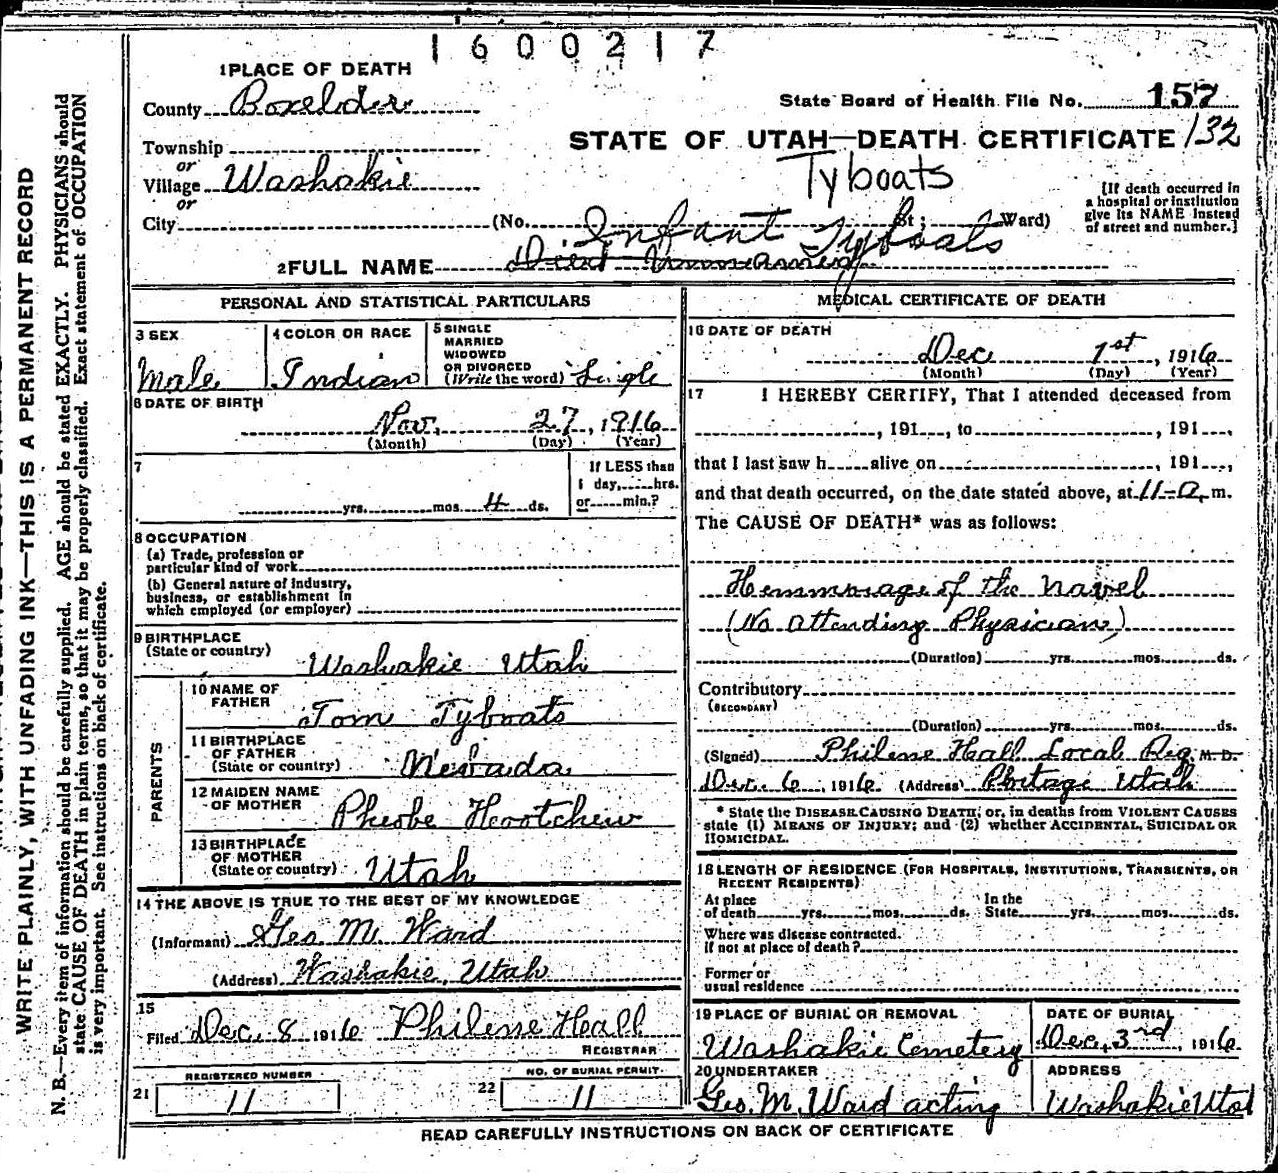 1600217
1 PLACE OF DEATH
County Boxelder
State Board of Health File No. 157
STATE OF UTAH—DEATH CERTIFICATE 132
Township
or
Village Washakie
or
City
Tyboats
(No. St; Ward)
[If death occurred in
a hospital or institution
give its NAME instead
of street and number.]
Infant Tyboats
2 FULL NAME Died Unnamed
PERSONAL AND STATISTICAL PARTICULARS
3 SEX
Male
4 COLOR OR RACE
Indian
5 SINGLE
MARRIED
WIDOWED
OR DIVORCED
(Write the word) Single
6 DATE OF BIRTH
Nov. 27, 1916
(Month) (Day) (Year)
7
If LESS than
1 day, hrs.
or min.?
yrs. mos. 4 ds.
8 OCCUPATION
(a) Trade, profession or
particular kind of work
(b) General nature of industry,
business, or establishment in
which employed (or employer)
9 BIRTHPLACE
(State or country)
Washakie Utah
PARENTS
10 NAME OF
FATHER
Tom Tyboats
11 BIRTHPLACE
OF FATHER
(State or country) Nevada
12 MAIDEN NAME
OF MOTHER Pheobe Hootchew
13 BIRTHPLACE
OF MOTHER
(State or country) Utah
14 THE ABOVE IS TRUE TO THE BEST OF MY KNOWLEDGE
(Informant) Geo. M. Ward
(Address) Washakie, Utah
15
Filed Dec. 8 1916 Philene Hall
REGISTRAR
REGISTERED NUMBER
21 11
NO. OF BURIAL PERMIT
22 11
MEDICAL CERTIFICATE OF DEATH
16 DATE OF DEATH
Dec 1st, 1916
(Month) (Day) (Year)
17 I HEREBY CERTIFY, That I attended deceased from
, 191 , to , 191 ,
that I last saw h alive on , 191 ,
and that death occurred, on the date stated above, at 11-a. m.
The CAUSE OF DEATH* was as follows:
Hemmorage of the navel
(No attending Physician)
(Duration) yrs. mos. ds.
Contributory
(SECONDARY)
(Duration) yrs. mos. ds.
(Signed) Philene Hall Local Reg. M. D.
Dec. 6, 1916. (Address) Portage Utah
* State the DISEASE CAUSING DEATH; or, in deaths from VIOLENT CAUSES
state (1) MEANS OF INJURY; and (2) whether ACCIDENTAL, SUICIDAL OR
HOMICIDAL.
18 LENGTH OF RESIDENCE (FOR HOSPITALS, INSTITUTIONS, TRANSIENTS, OR
RECENT RESIDENTS)
At place
of death yrs. mos. ds.
In the
State yrs. mos. ds.
Where was disease contracted.
If not at place of death?
Former or
usual residence
19 PLACE OF BURIAL OR REMOVAL
Washakie Cemetery
DATE OF BURIAL
Dec. 3rd, 1916.
20 UNDERTAKER
Geo. M. Ward acting
ADDRESS
Washakie Utah
READ CAREFULLY INSTRUCTIONS ON BACK OF CERTIFICATE
WRITE PLAINLY, WITH UNFADING INK—THIS IS A PERMANENT RECORD
N. B.—Every item of information should be carefully supplied. AGE should be stated EXACTLY. PHYSICIANS should
state CAUSE OF DEATH in plain terms, so that it may be properly classified. Exact statement of OCCUPATION
is very important. See instructions on back of certificate.